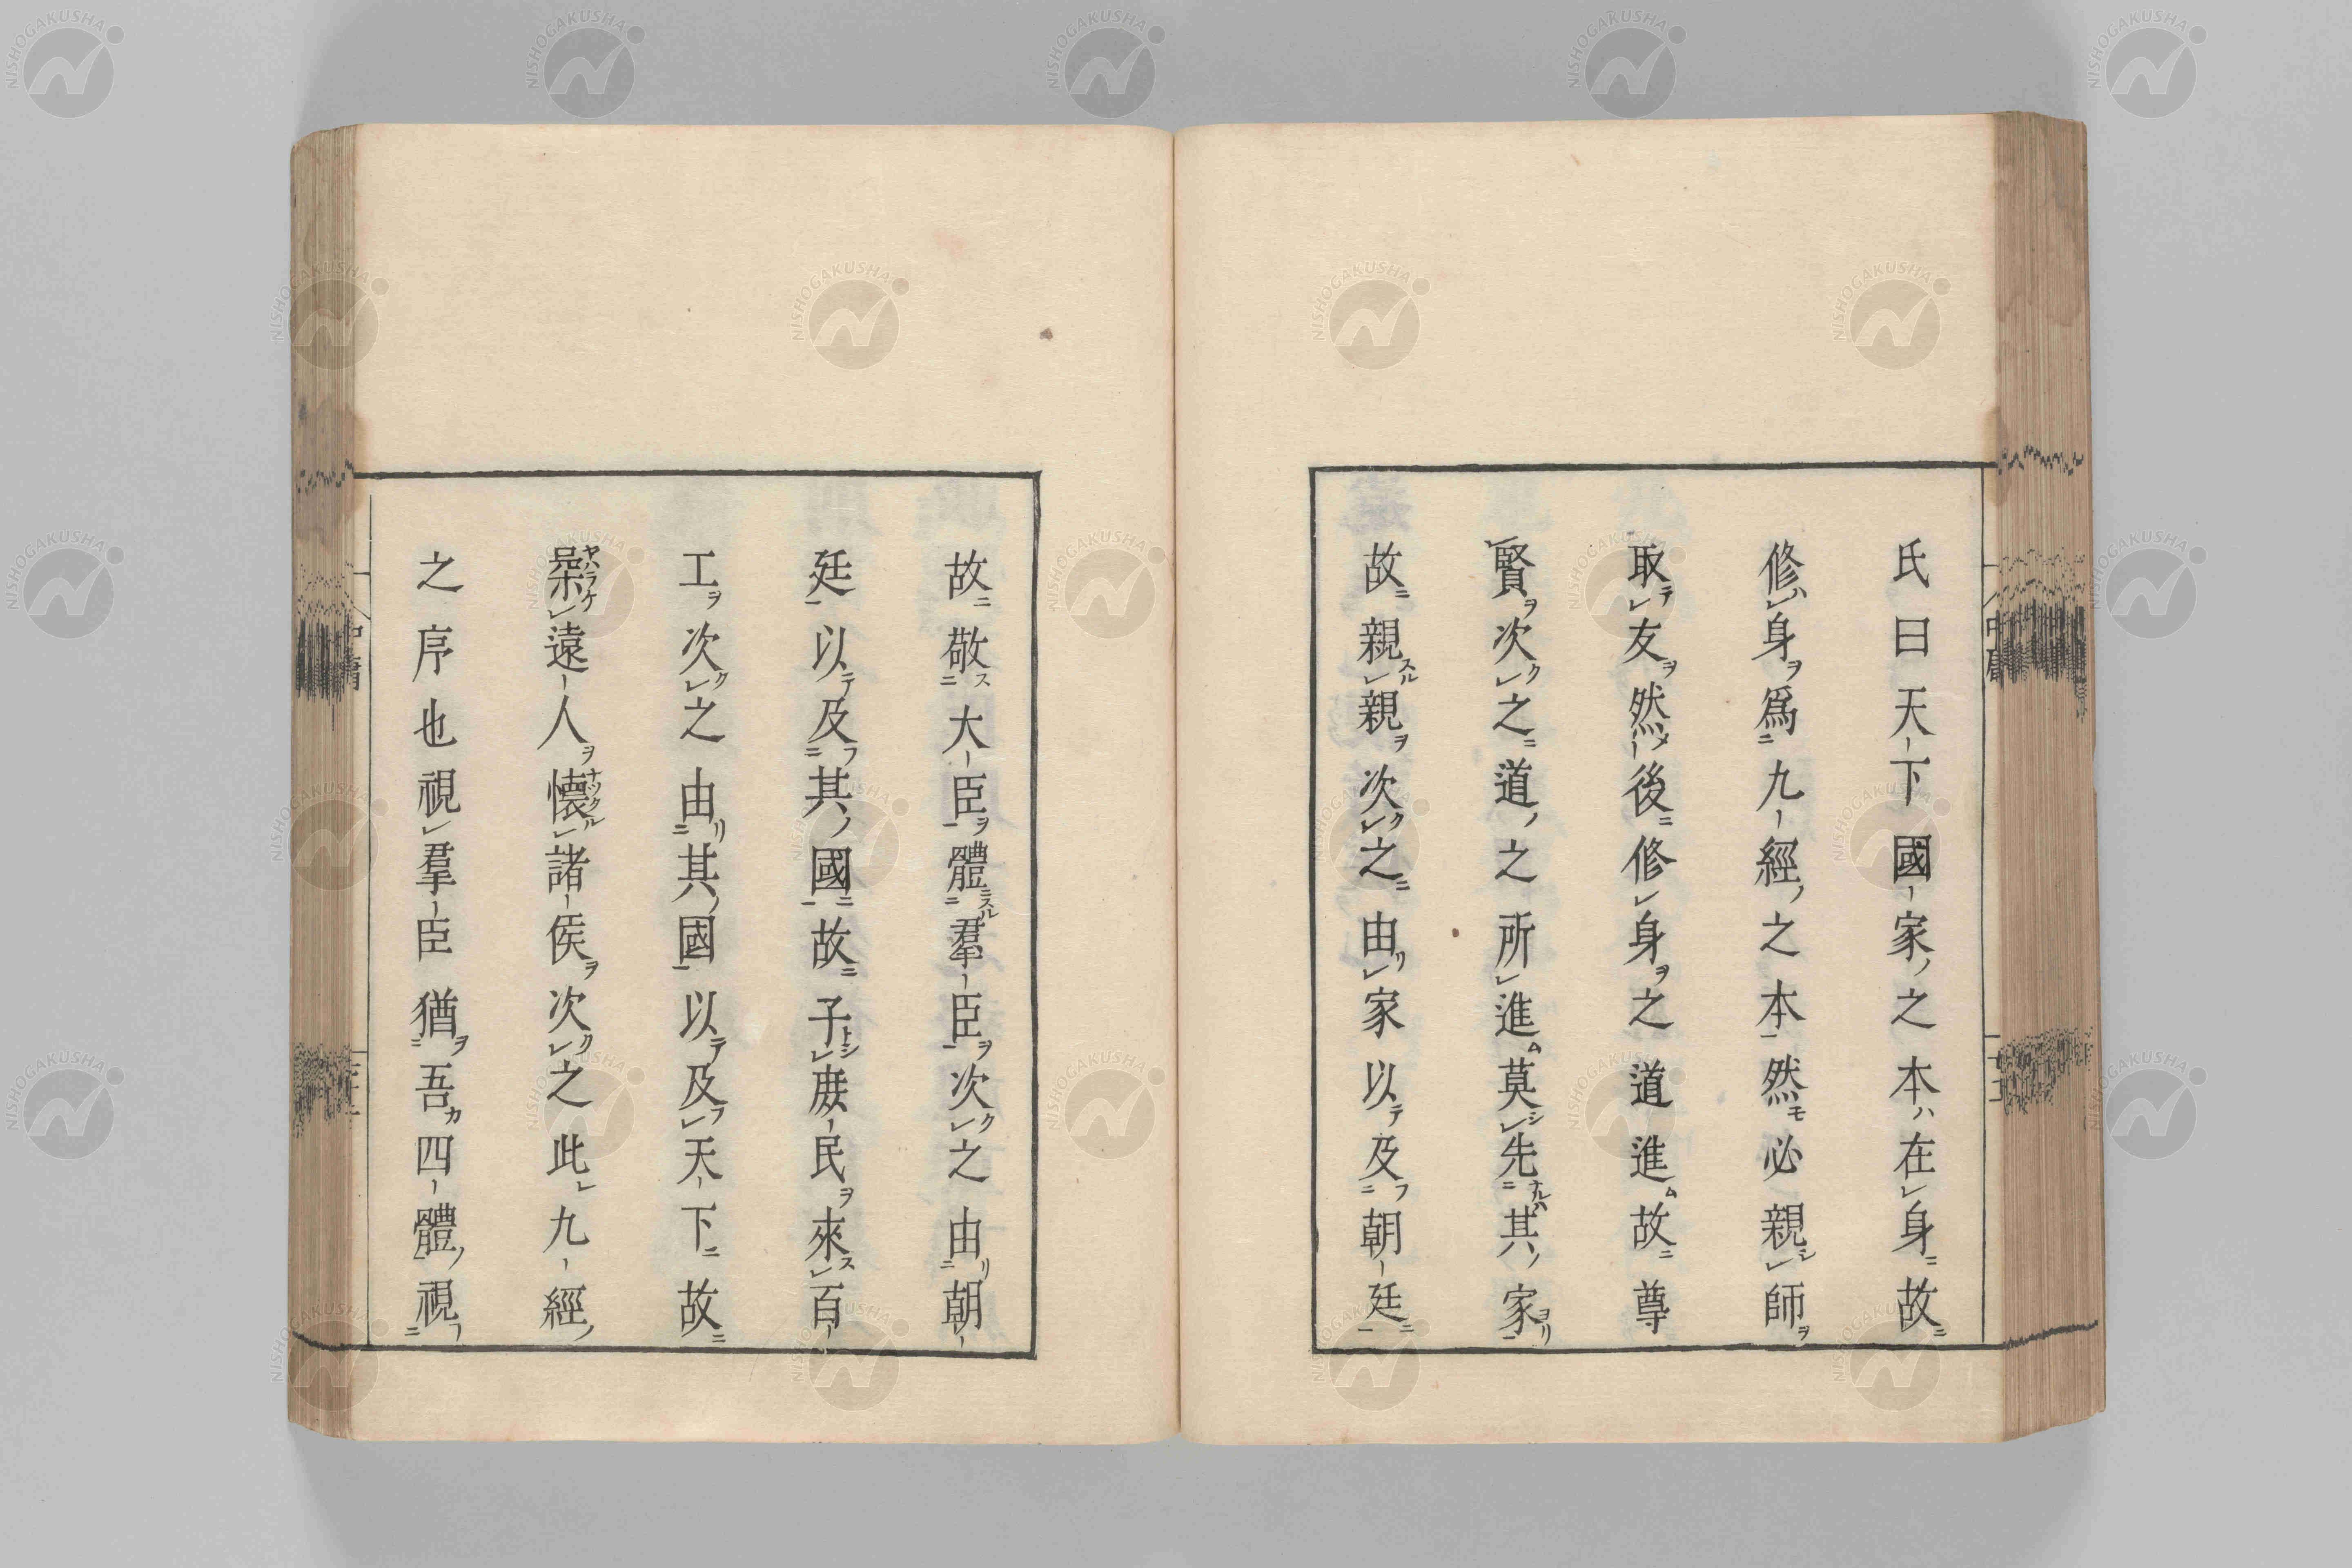 氏曰天下國家之本在身故
修身爲九經之本然必親師
取友然後修身之道進故尊
賢次之道之所進莫先其家
故親親次之由家以及朝廷
故敬大臣體羣臣次之由朝
廷以及其國故子庶民來百
工次之由其國以及天下故
柔遠人懷諸侯次之此九經
之序也視羣臣猶吾四體視
中庸
NISHOGAKUSHA